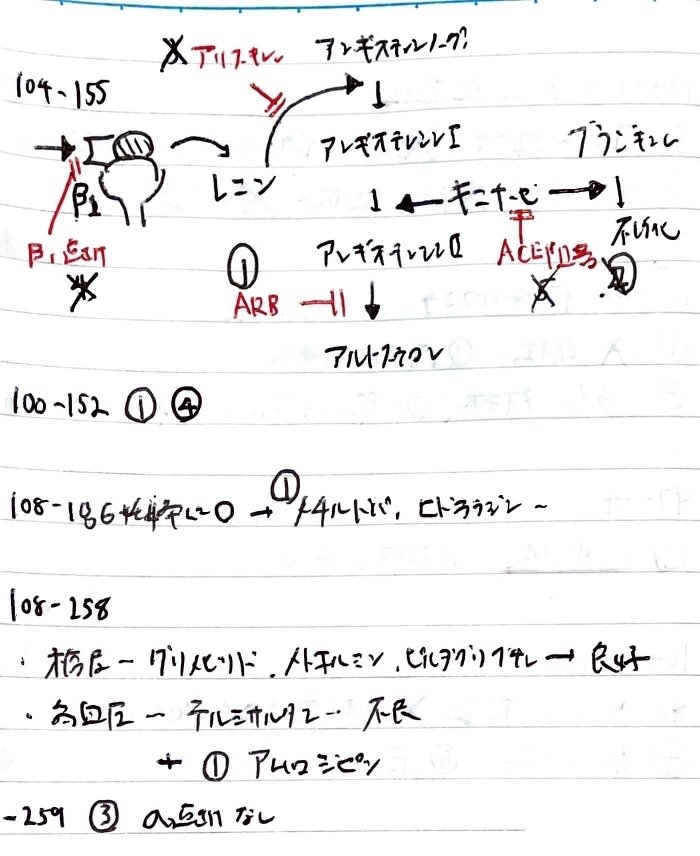 アリスキレン アンギオテンシノーゲン
104-155
アンギオテンシンI ブラジキニン
レニン キニナーゼ
β1 不活化
β1遮断 アンギオテンシンII ACE阻害 ②
① ARB
アルドステロン
100-152 ① ④
108-186 妊婦に○ → ① メチルドパ、ヒドララジン ~
108-258
・糖尿 ー グリメピリド、メトホルミン、ビルダグリプチン → 良好
・高血圧 ー テルミサルタン… 不良
+ ① アムロジピン
-259 ③ α遮断なし